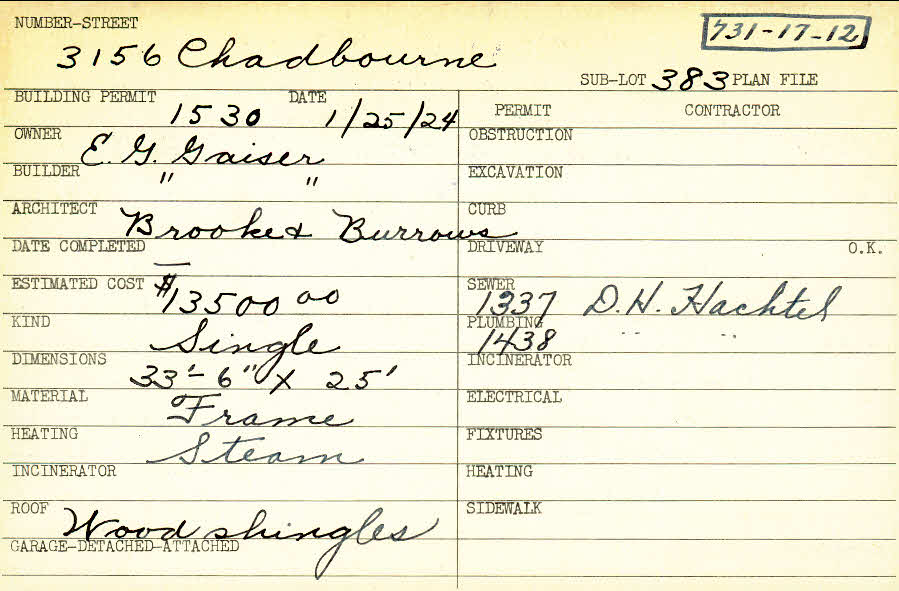 NUMBER-STREET
3156 Chadbourne
731-17-12
SUB-LOT 383 PLAN FILE
BUILDING PERMIT 1530 DATE 1/25/24
PERMIT CONTRACTOR
OWNER E. G. Gaiser
OBSTRUCTION
BUILDER " "
EXCAVATION
ARCHITECT Brooke & Burrows
CURB
DATE COMPLETED —
DRIVEWAY O.K.
ESTIMATED COST $13500 00
SEWER 1337 D. H. Hachtel
KIND Single
PLUMBING 1438 " "
DIMENSIONS 33'-6" x 25'
INCINERATOR
MATERIAL Frame
ELECTRICAL
HEATING Steam
FIXTURES
INCINERATOR
HEATING
ROOF Wood shingles
SIDEWALK
GARAGE-DETACHED-ATTACHED